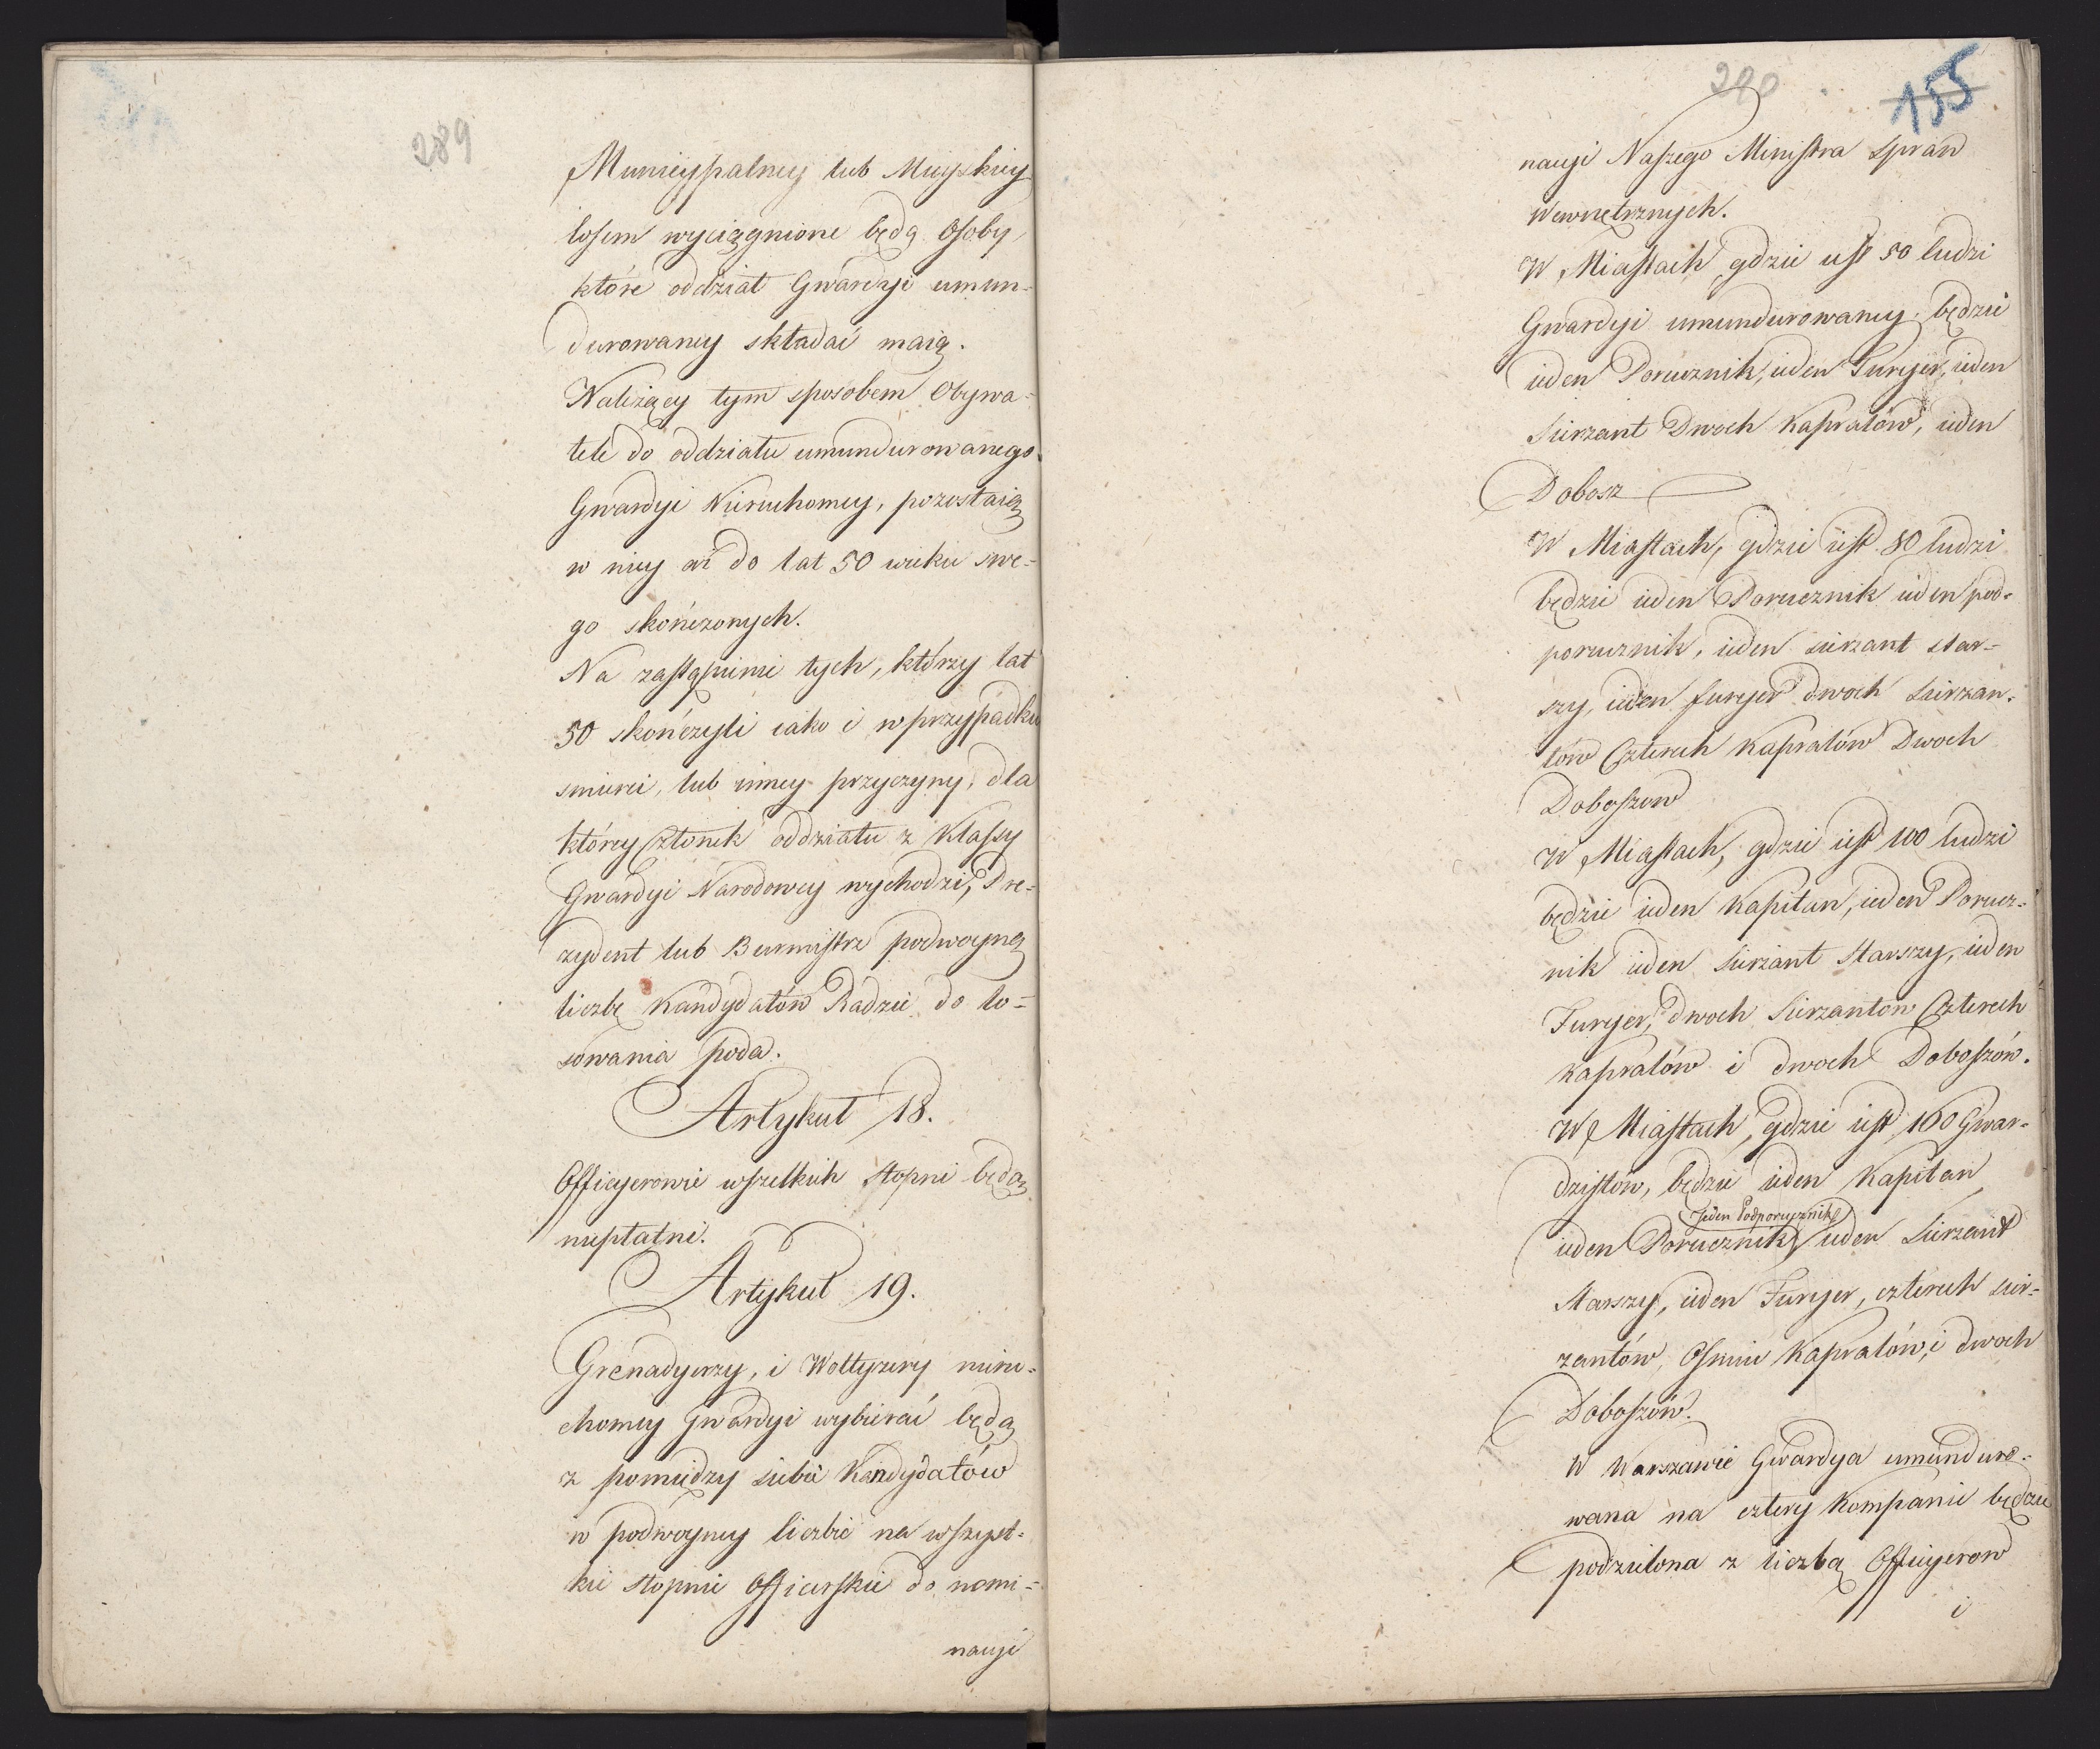 289
Municypalney lub Mieyskiey
losem wyciągnione będą Osoby,
które oddział Gwardyi umun-
durowaney składać maią.
Należący tym sposobem Obywa-
tele do oddziału umundurowanego
Gwardyi Nieruchomey, pozostaią
w niey aż do lat 50 wieku swe-
go skończonych.
Na zastąpienie tych, którzy lat
50 skończyli iako i w przypadku
smierci, lub inney przyczyny, dla
którey Członek oddziału z Klassy
Gwardyi Narodowey wychodzi, Pre-
zydent lub Burmistrz podwoyną
liczbę Kandydatów Radzie do lo-
sowania poda.
Artykuł 18.
Officyerowie wszelkich stopni będą
niepłatni.
Artykuł 19.
Grenadyerzy, i Woltyżery nieru-
chomey Gwardyi wybierać będą
z pomiędzy siebie Kandydatów
w podwoyney liczbie na wszyst-
kie stopnie Officerskie do nomi-
nacyi
290
155
nacyi Naszego Ministra spraw
Wewnętrznych.
W Miastach gdzie iest 50 ludzi
Gwardyi umundurowaney będzie
ieden Porucznik, ieden Furyer, ieden
Sierżant Dwoch Kapralów, ieden
Dobosz
W Miastach, gdzie iest 80 ludzi
będzie ieden Porucznik ieden pod-
porucznik, ieden sierżant star-
szy, ieden furyer dwoch Sierżan-
tów Czterech Kapralów Dwoch
Doboszow
W Miastach, gdzie iest 100 ludzi
będzie ieden Kapitan, ieden Porucz-
nik ieden Sierżant Starszy, ieden
Furyer, dwoch Sierżantow Czterech
Kapralów i dwoch Doboszów.
W Miastach, gdzie iest 160 Gwar-
dzistów, będzie ieden Kapitan
jeden Podporucznik
ieden Porucznik, ieden Sierżant
Starszy, ieden Furyer, czterech sier-
żantów, Osmiu Kapralów, i dwoch
Doboszów.
W Warszawie Gwardya umunduro-
wana na cztery Kompanie będzie
podzielona z liczbą Officyerow
i